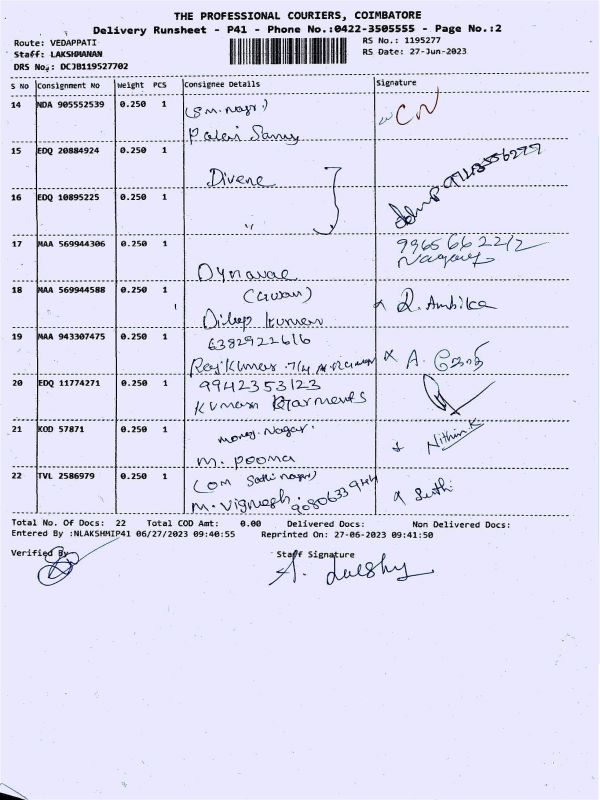 THE PROFESSIONAL COURIERS, COIMBATORE
Delivery Runsheet - P41 - Phone No.:0422-3505555 - Page No.:2
Route: VEDAPPATI
RS No.: 1195277
Staff: LAKSHMANAN
RS Date: 27-Jun-2023
DRS No.: DCJB119527702
S No Consignment No Weight PCS Consignee Details Signature
14 NDA 905552539 0.250 1
CN
15 EDQ 20884924 0.250 1
Divene
16 EDQ 10895225 0.250 1
"
17 MAA 569944306 0.250 1
9965662212
18 MAA 569944588 0.250 1
Dilip Kumar
R. Ambika
19 MAA 943307475 0.250 1
6382922616
Rajkumar
A. ஜோதி
20 EDQ 11774271 0.250 1
9942353123
Kumaran Garments
21 KOD 57871 0.250 1
Nagar.
M. Poorna
Nithin.K
22 TVL 2586979 0.250 1
(OM Sakthi nagar)
M. Vignesh. 9080633944
Total No. Of Docs: 22 Total COD Amt: 0.00 Delivered Docs: Non Delivered Docs:
Entered By :NLAKSHMIP41 06/27/2023 09:40:55 Reprinted On: 27-06-2023 09:41:50
Verified By
Staff Signature